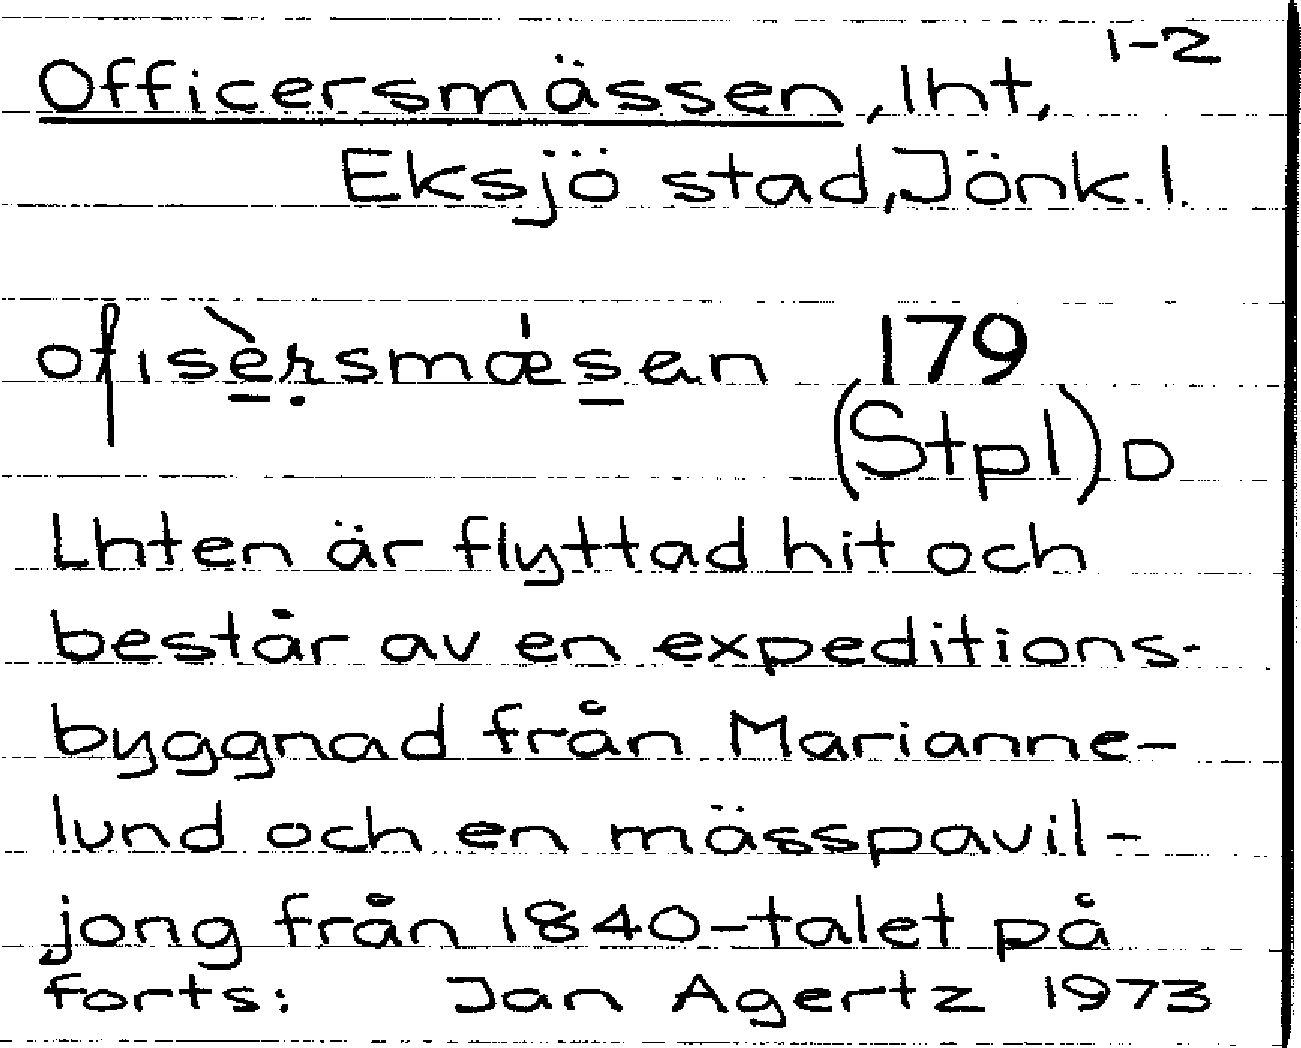 1-2
Officersmässen, lht,
Eksjö stad, Jönk. l.
ofisèṛsmǽsen 179
(Stpl) D
Lhten är flyttad hit och
består av en expeditions-
byggnad från Marianne-
lund och en mässpavil-
jong från 1840-talet på
forts: Jan Agertz 1973